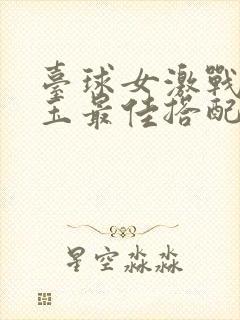 臺球女激戰
王最佳搭配
星空淼淼